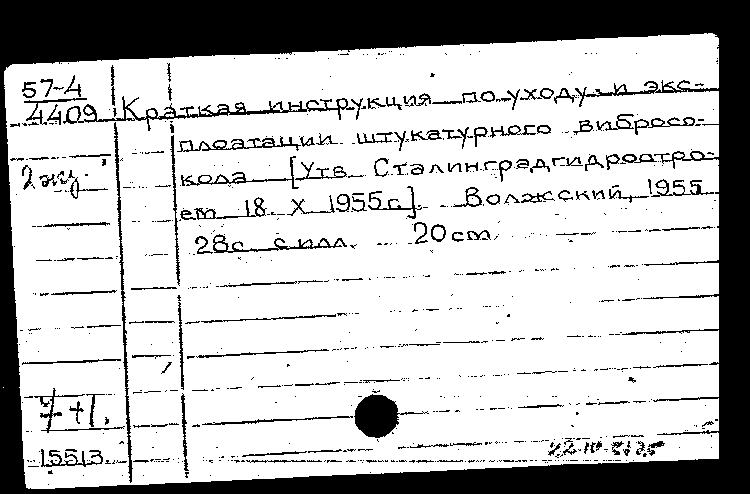 57-4
4409 Краткая инструкция по уходу и экс-
плоатации штукатурного вибросо-
2 экз. кола [Утв Сталинградгидростро-
ем 18. X 1955г.]. Волжский, 1955
28с. с илл. 20см
7+1.
15513.